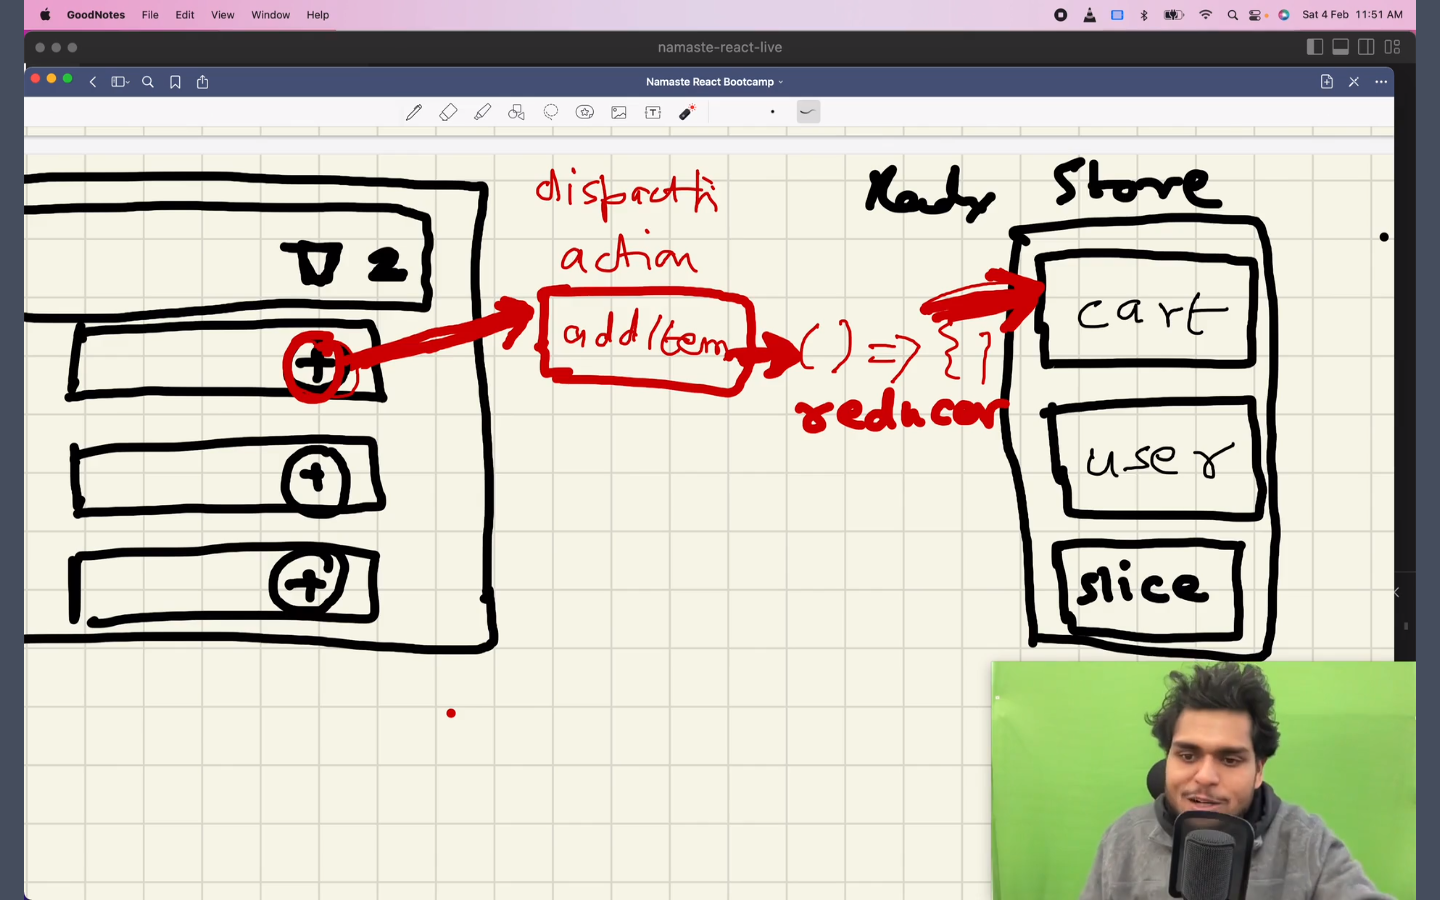 GoodNotes File Edit View Window Help Sat 4 Feb 11:51 AM
namaste-react-live
Namaste React Bootcamp
T
dispacth
action
Store
2
addItem
() => {}
reducer
cart
user
slice